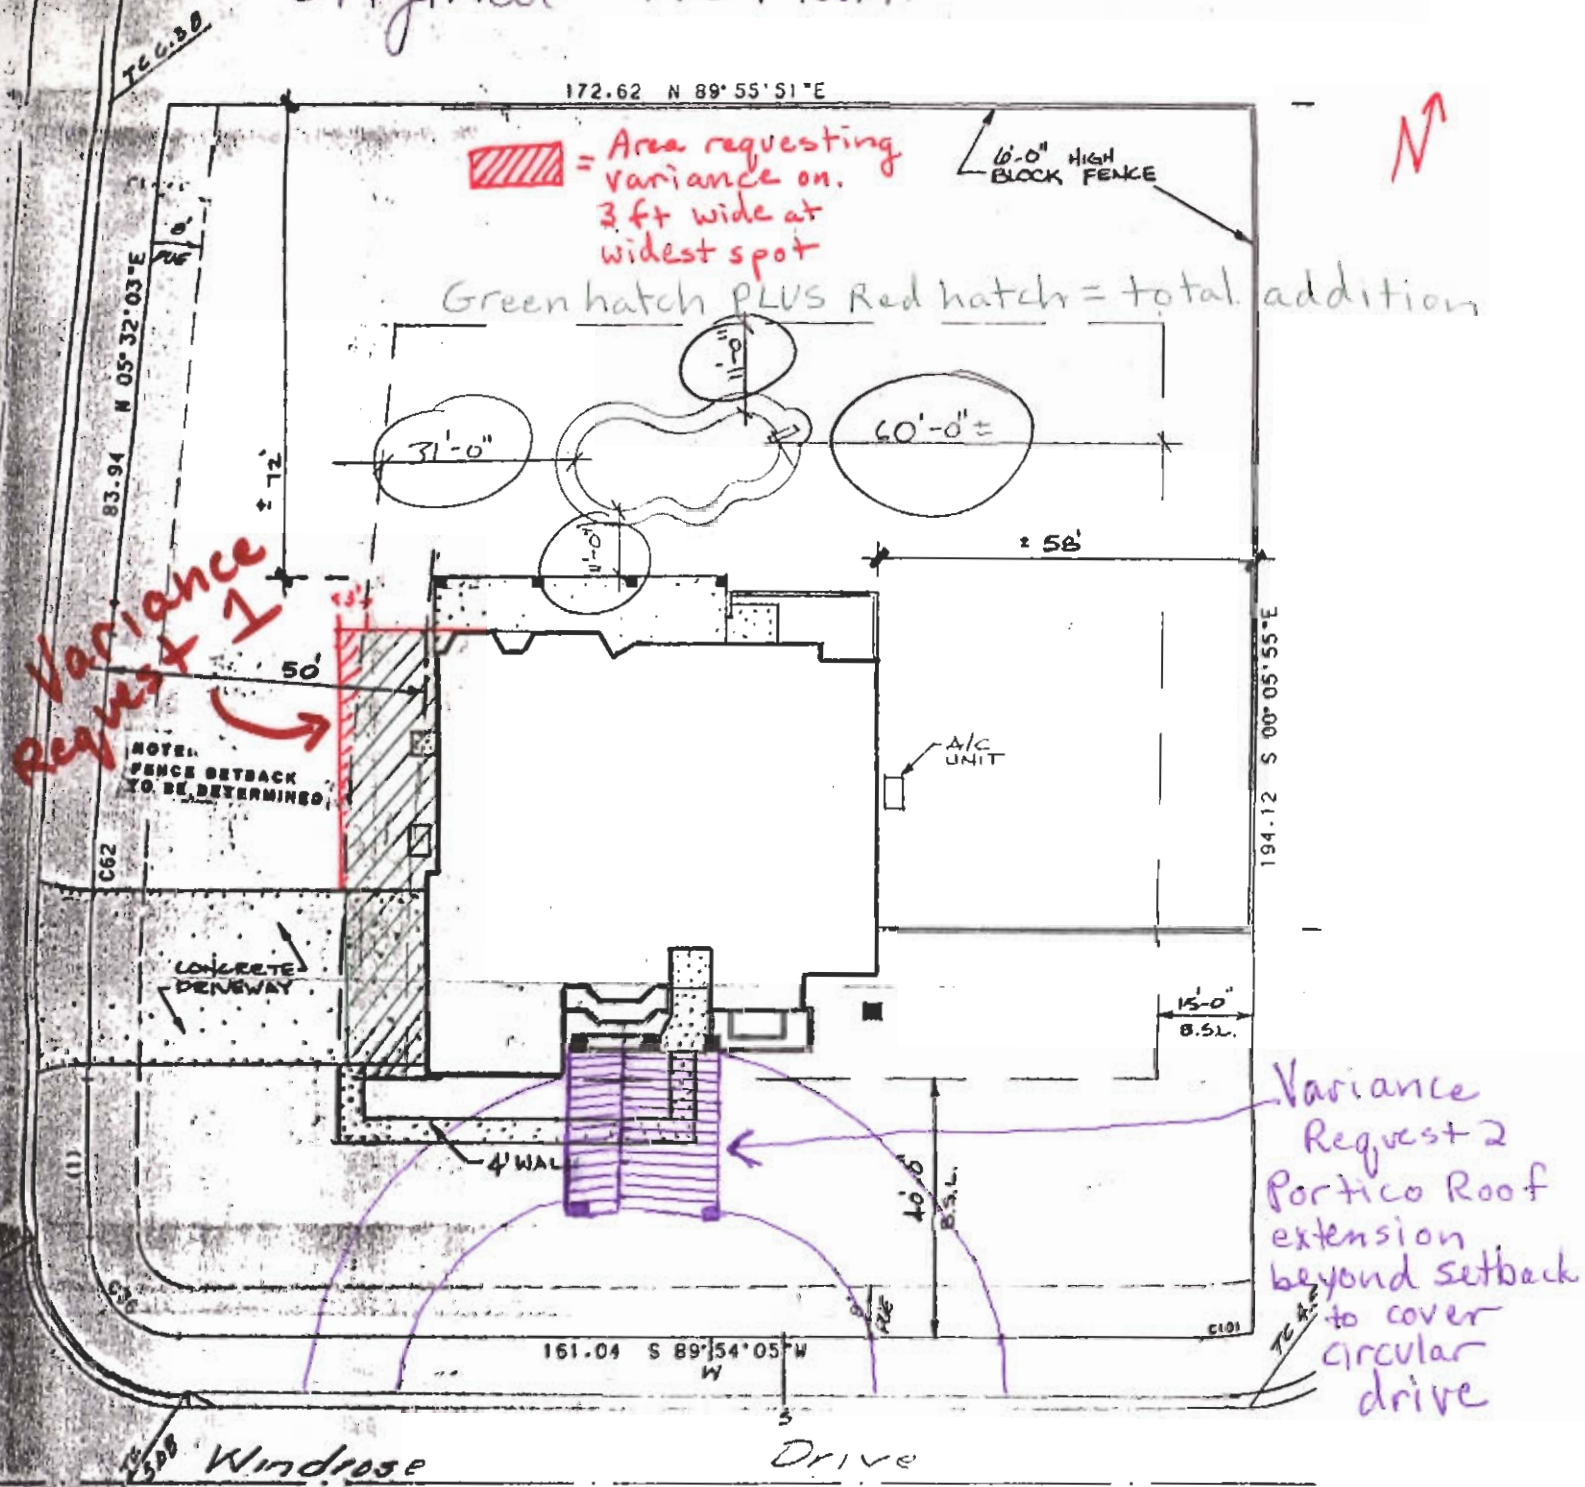 Original
TC 6.30
172.62 N 89°55'51"E
N
= Area requesting
variance on.
3 ft wide at
widest spot
6'-0" HIGH
BLOCK FENCE
8'
PUE
83.94 N 05°32'03"E
Green hatch PLUS Red hatch = total addition
11'-0"
31'-0"
60'-0"±
± 72'
11'-0"
± 58'
3'
Variance
Request 1
50'
NOTE:
FENCE SETBACK
TO BE DETERMINED
A/C
UNIT
194.12 S 00°05'55"E
C62
CONCRETE
DRIVEWAY
15'-0"
B.S.L.
(1)
4' WAL
40'-0"
B.S.L.
Variance
Request 2
Portico Roof
extension
beyond setback
to cover
circular
drive
8'
PUE
C101
161.04 S 89°54'05"W
W
S
Windrose Drive